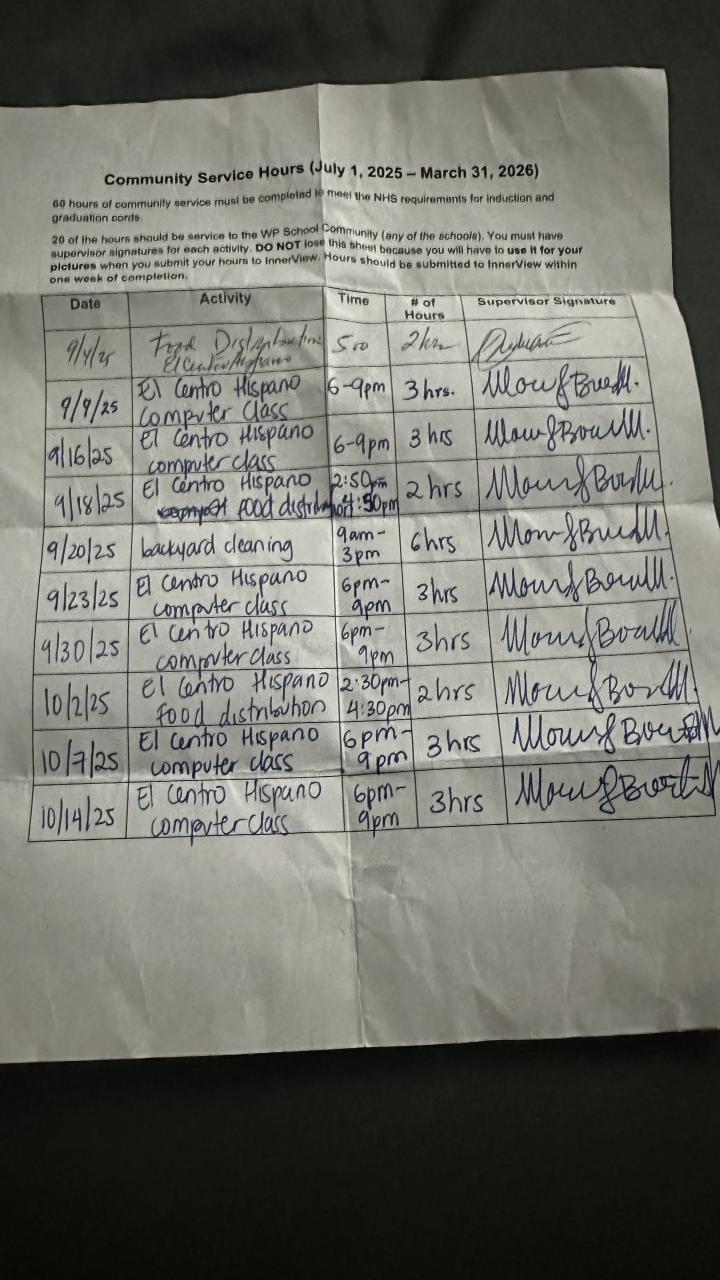 Community Service Hours (July 1, 2025 – March 31, 2026)
60 hours of community service must be completed to meet the NHS requirements for induction and
graduation cords.
20 of the hours should be service to the WP School Community (any of the schools). You must have
supervisor signatures for each activity. DO NOT lose this sheet because you will have to use it for your
pictures when you submit your hours to InnerView. Hours should be submitted to InnerView within
one week of completion.
Date Activity Time # of Hours Supervisor Signature
9/4/25 Food Distribution 5:00 2hrs
El Centro Hispano
9/9/25 El Centro Hispano 6-9pm 3 hrs.
computer class
9/16/25 El Centro Hispano 6-9pm 3 hrs
computer class
9/18/25 El Centro Hispano 2:50pm 2 hrs
food distribution 4:50pm
9/20/25 backyard cleaning 9am- 6hrs
3pm
9/23/25 El Centro Hispano 6pm- 3hrs
computer class 9pm
9/30/25 El Centro Hispano 6pm- 3hrs
computer class 9pm
10/2/25 El Centro Hispano 2:30pm- 2hrs
food distribution 4:30pm
10/7/25 El Centro Hispano 6pm- 3hrs
computer class 9pm
10/14/25 El Centro Hispano 6pm- 3hrs
computer class 9pm